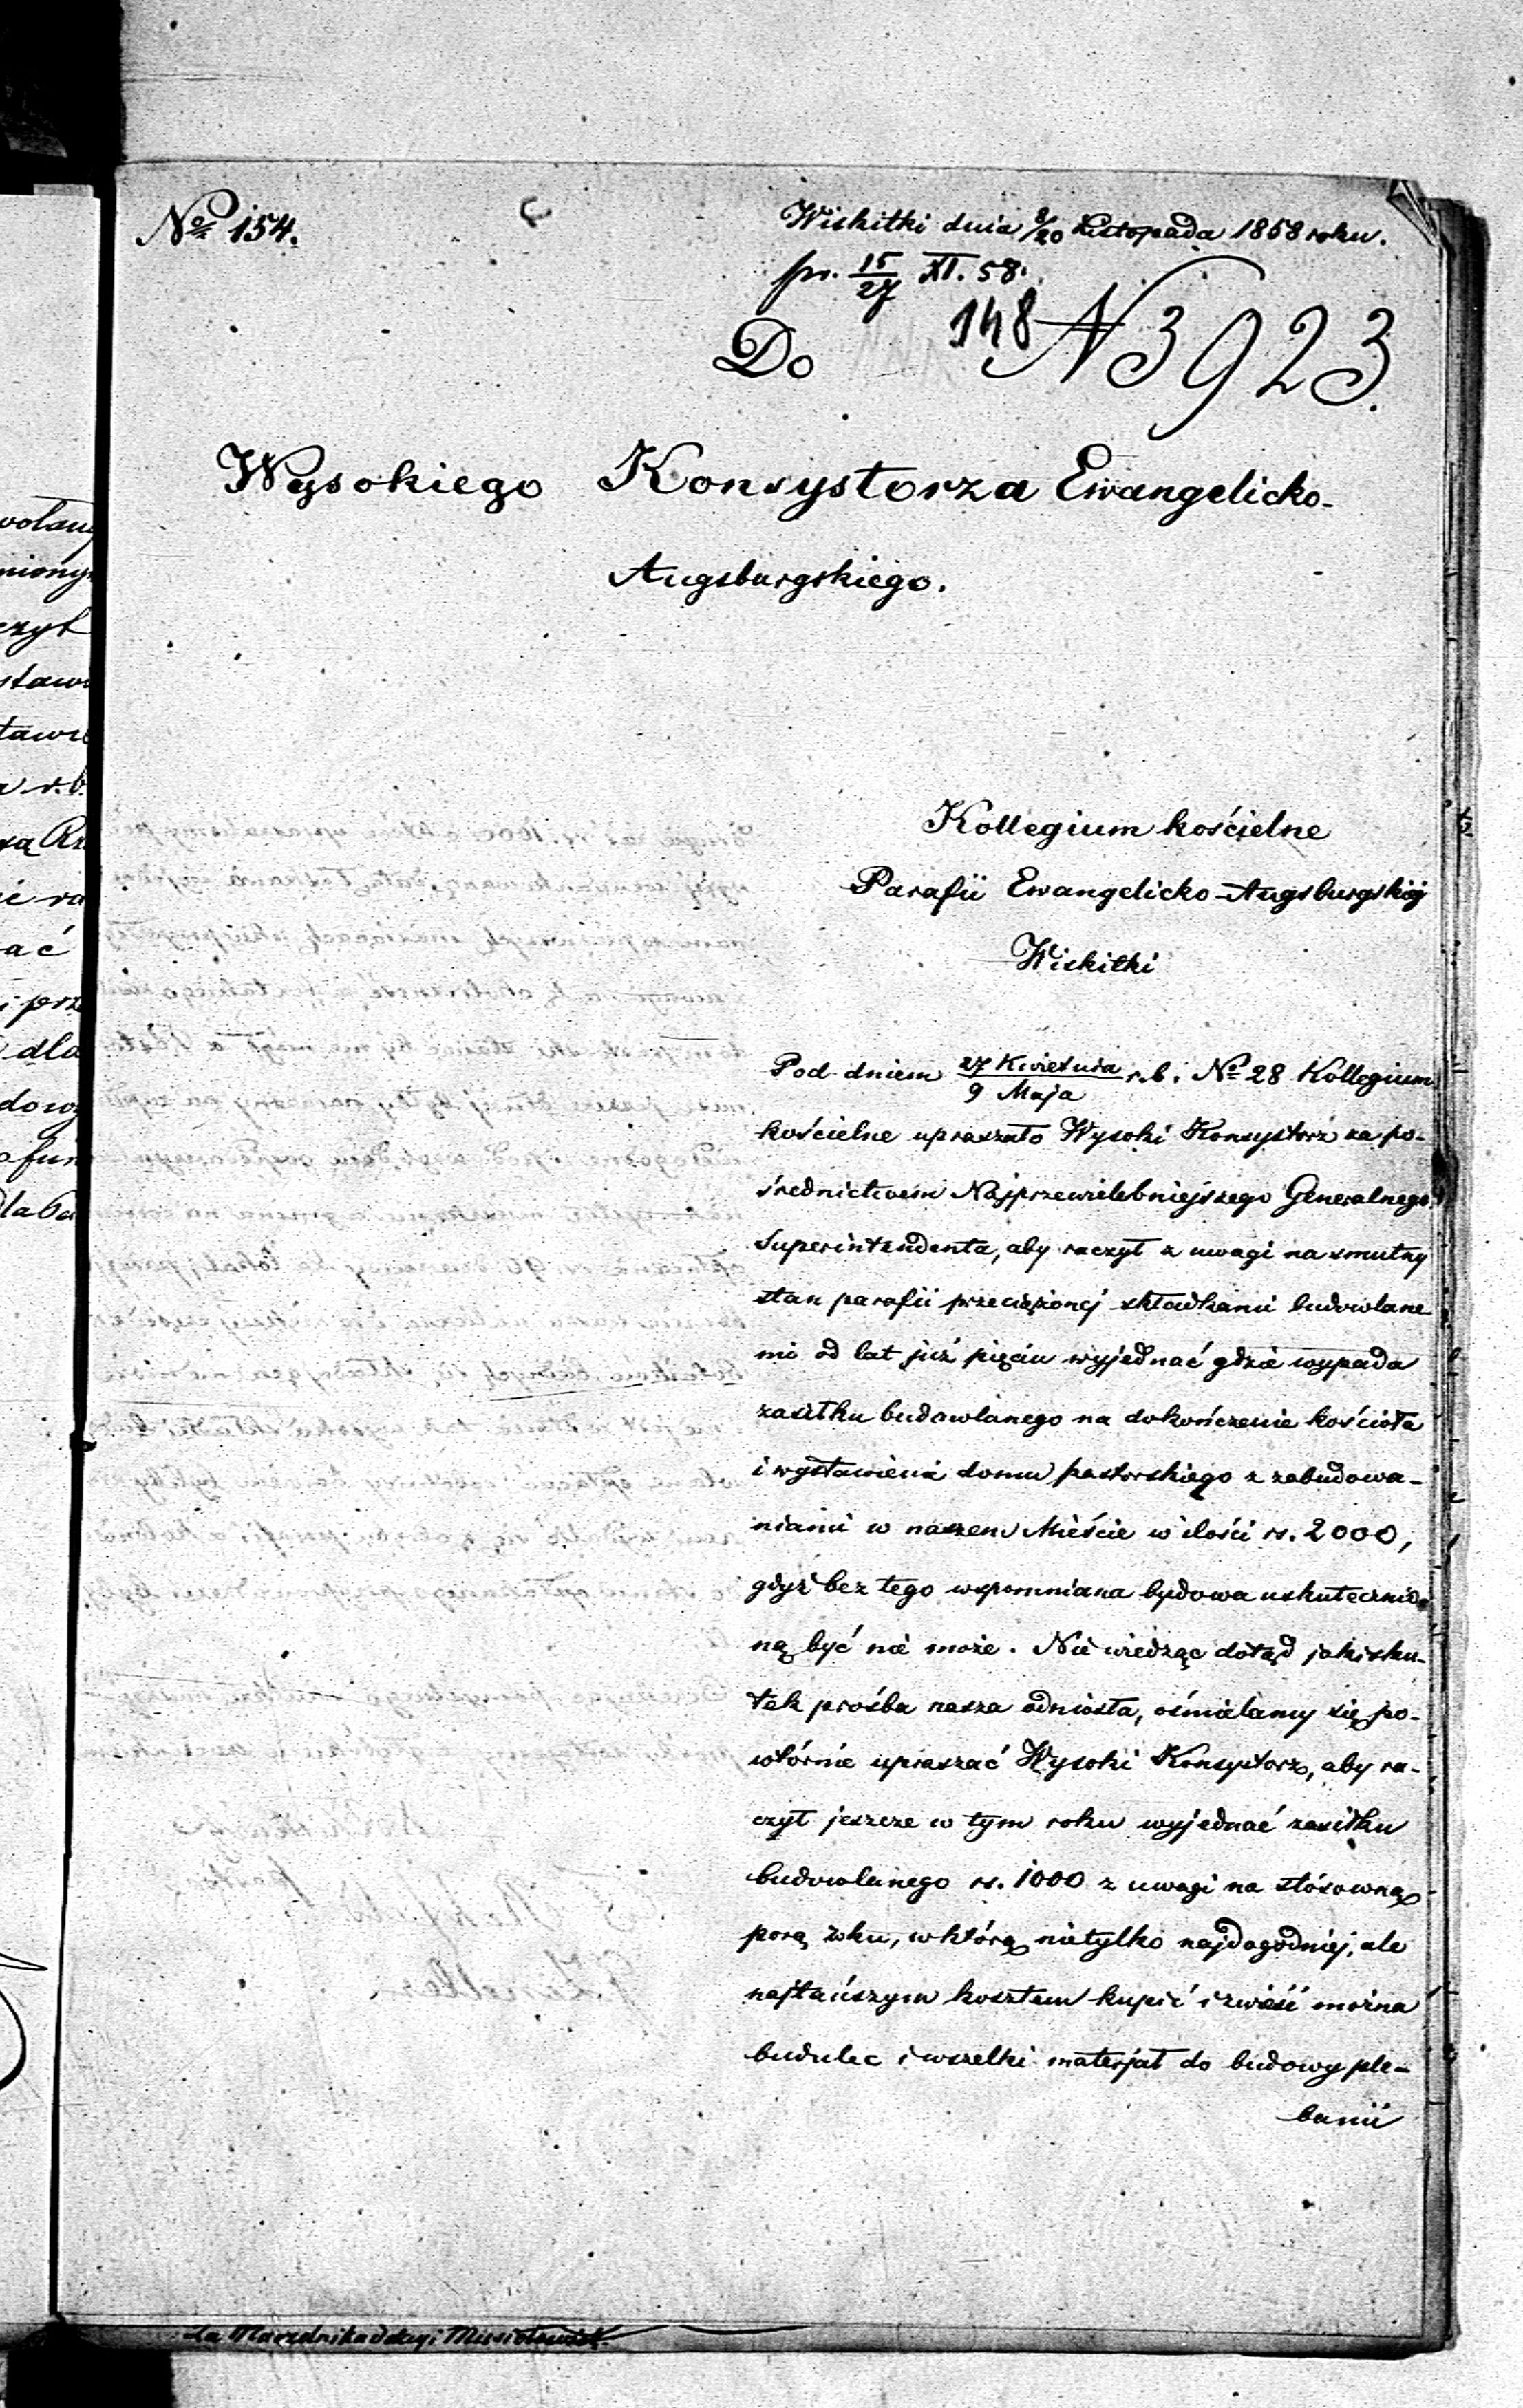 No 154.
Wiskitki dnia 8/20 Listopada 1858 roku.
pr. 15/27 XI. 58.
148 N 3923.
Do
Wysokiego Konsystorza Ewangelicko-
Augsburgskiego.
Kollegium kościelne
Parafii Ewangelicko-Augsburgskiéj
Wiskitki
Pod dniem 27 Kwietnia / 9 Maja r. b. No 28 Kollegium
kościelne upraszało Wysoki Konsystorz za po-
średnictwem Najprzewielebniejszego Generalnego
Superintendenta, aby raczył z uwagi na smutny
stan parafii przeciążonej składkami budowlane
mi od lat już pięciu wyjednać gdzie wypada
zasiłku budowlanego na dokończenie kościoła
i wystawienie domu pastorskiego z zabudowa-
niami w naszem Mieście w ilości rs. 2000,
gdyż bez tego wspomniana budowa uskutecznio
ną być nie może. Nie wiedząc dotąd jaki sku-
tek prośba nasza odniosła, ośmielamy się po-
wtórnie upraszać Wysoki Konsystorz, aby ra-
czył jeszcze w tym roku wyjednać zasiłku
budowlanego rs. 1000 z uwagi na stósowną
porą roku, w którą nietylko najdogodniej, ale
najtańszym kosztem kupić i zwieść można
budulec i wszelki materjał do budowy ple-
banii